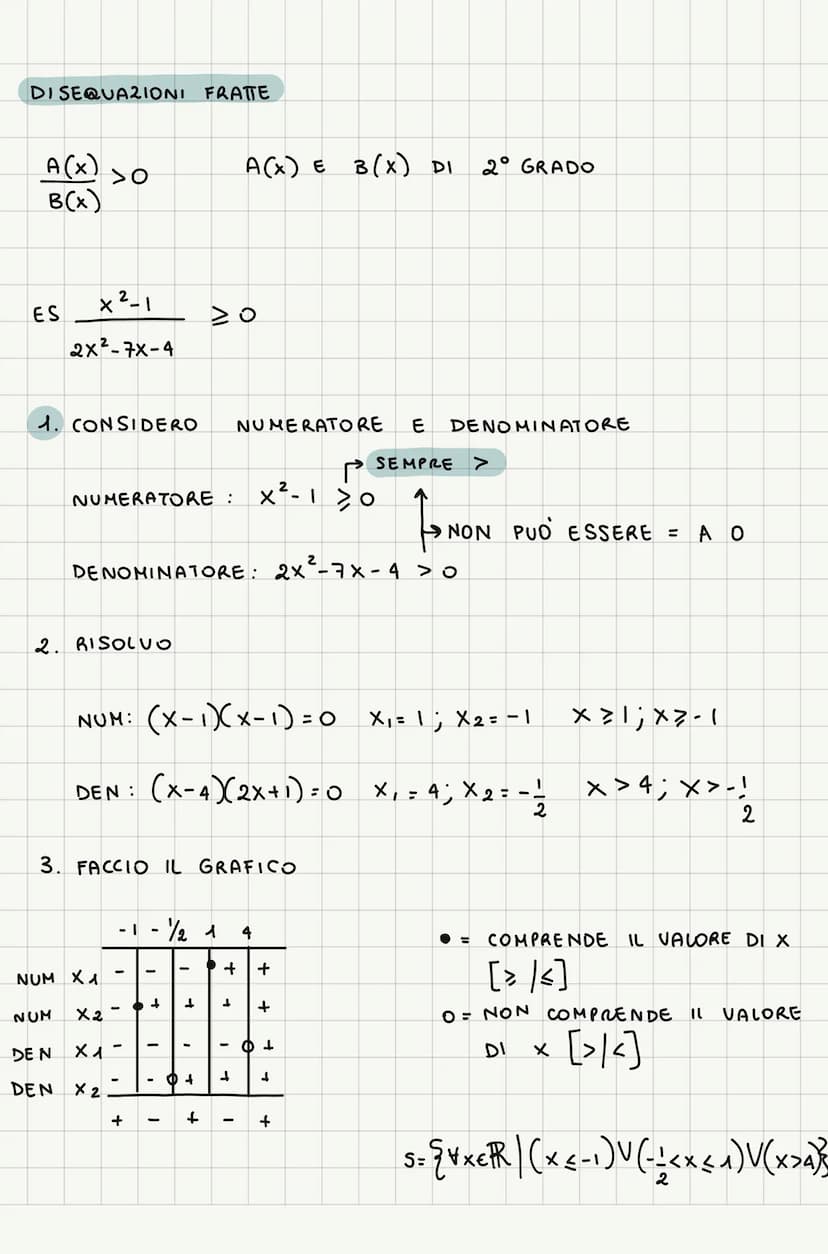 DISEQUAZIONI FRATTE
A(x)/B(x) >0 A(x) E B(x) DI 2° GRADO
ES (x²-1)/(2x²-7x-4) ≥ 0
1. CONSIDERO NUMERATORE E DENOMINATORE
SEMPRE >
NUMERATORE: x²-1 ≥ 0
NON PUÒ ESSERE = A 0
DENOMINATORE: 2x²-7x-4 > 0
2. RISOLVO
NUM: (x-1)(x-1)=0 x₁=1; x₂=-1 x≥1; x≥-1
DEN: (x-4)(2x+1)=0 x₁=4; x₂=-1/2 x>4; x>-1/2
3. FACCIO IL GRAFICO
-1 -1/2 1 4
NUM X1 - - - ● + +
NUM X2 - ● + + + +
DEN X1 - - - - o +
DEN X2 - - o + + +
+ - + - +
● = COMPRENDE IL VALORE DI X
[≥/≤]
O = NON COMPRENDE IL VALORE
DI X [>/<]
S={∀x∈ℝ|(x≤-1)∨(-1/2<x≤1)∨(x>4)}